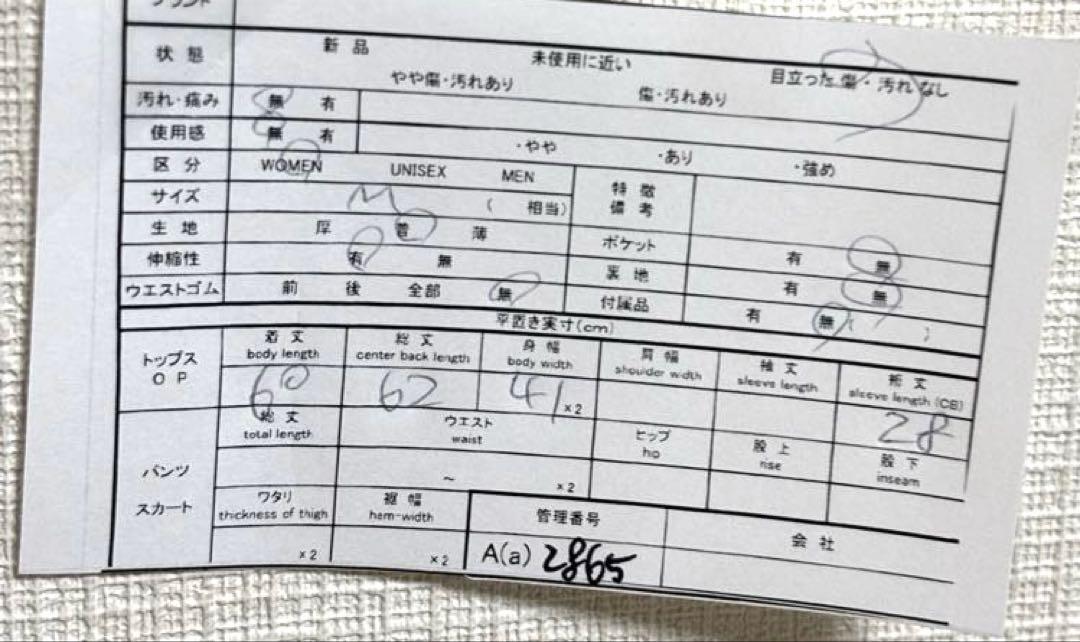 ブランド
状態 新品 未使用に近い 目立った傷・汚れなし
やや傷・汚れあり 傷・汚れあり
汚れ・痛み 無 有
使用感 無 有 ・やや ・あり ・強め
区分 WOMEN UNISEX MEN 特徴
備考
サイズ M ( 相当)
生地 厚 普 薄 ポケット 有 無
伸縮性 有 無 裏地 有 無
ウエストゴム 前 後 全部 無 付属品 有 無 ( )
平置き実寸(cm)
トップス
OP
着丈 総丈 身幅 肩幅 袖丈 裄丈
body length center back length body width shoulder width sleeve length sleeve length (CB)
60 62 41 ×2 28
総丈 ウエスト ヒップ 股上 股下
total length waist hip rise inseam
パンツ ~ ×2
スカート
ワタリ 裾幅 管理番号 会社
thickness of thigh hem-width
×2 ×2 A(a) 2865